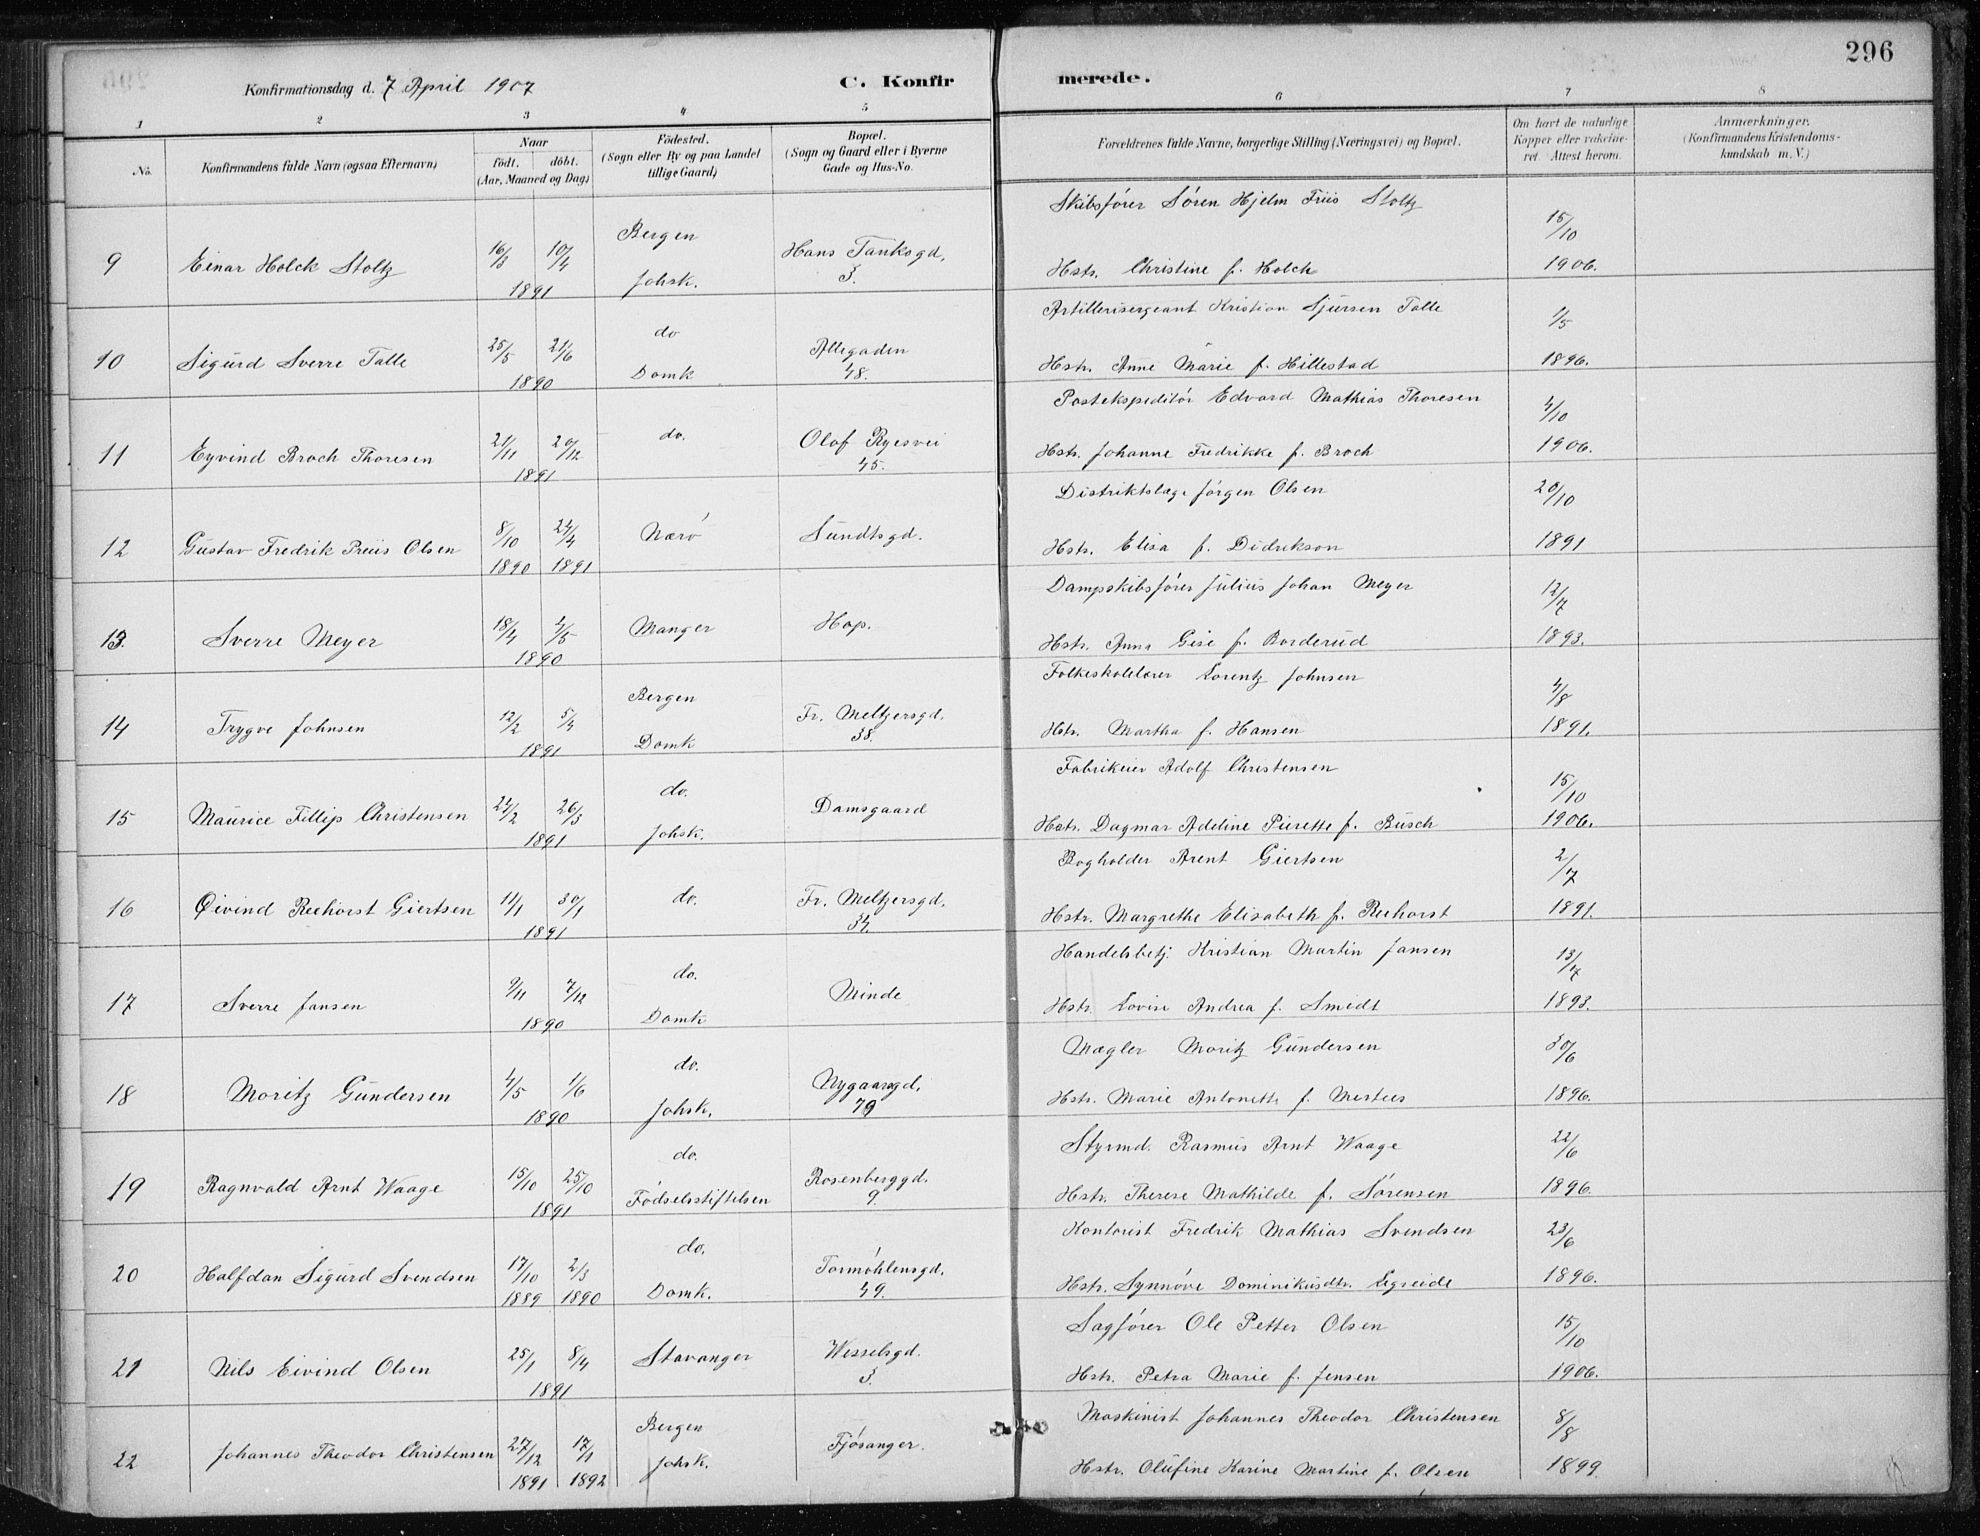 296
Konfirmationsdag d. 7 April 1907
C. Konfirmerede.
1 2 3 4 5 6 7 8
No.
Konfirmandens fulde Navn (ogsaa Efternavn)
Naar
födt. döbt.
(Aar, Maaned og Dag)
Födested.
(Sogn eller By og paa Landet
tillige Gaard)
Bopæl.
(Sogn og Gaard eller i Byerne
Gade og Hus-No.
Forældrenes fulde Navne, borgerlige Stilling (Næringsvei) og Bopæl.
Om havt de naturlige
Kopper eller vakcine-
ret. Attest herom.
Anmærkninger.
(Konfirmandens Kristendoms-
kundskab m. V.)
9 Einar Holck Stoltz 16/3 10/4 1891 Bergen Johsk. Hans Tanksgd. 3.
Skibsfører Sören Hjelm Friis Stoltz
Hstr. Christine f. Holch 15/10 1906.
10 Sigurd Sverre Talle 25/5 21/6 1890 do Domk Allegaden 48.
Artillerisergeant Kristian Sjursen Talle
Hstr. Anne Marie f. Hillestad 1/5 1896.
11 Eyvind Broch Thoresen 21/11 20/12 1891 do. Olaf Ryesvei 45.
Postekspeditör Edvard Mathias Thoresen
Hstr. Johanne Fredrikke f. Broch 4/10 1906.
12 Gustav Fredrik Preiis Olsen 8/10 1890 24/4 1891 Nærö Sundtsgd.
Distriktslæge Jörgen Olsen
Hstr. Elisa f. Didrikson 20/10 1891
13. Sverre Meyer 18/4 4/5 1890 Manger Hop.
Dampskibsfører Julius Johan Meyer
Hstr. Anna Gise f. Borderud 12/7 1893.
14 Trygve Johnsen 12/2 5/4 1891 Bergen Domk Fr. Meltzersgd. 38.
Folkeskolelærer Lorentz Johnsen
Hstr. Martha f. Hansen 4/8 1891.
15 Maurice Fillip Christensen 24/2 26/3 1891 do. Johsk. Damsgaard
Fabrikeier Adolf Christensen
Hstr. Dagmar Adeline Pierette f. Busch 15/10 1906.
16 Øivind Reehorst Giertsen 11/1 30/1 1891 do. Fr. Meltzersgd. 34.
Bogholder Arent Giertsen
Hstr. Margrethe Elisabeth f. Reehorst 2/7 1891.
17 Sverre Jansen 9/11 7/12 1890 do. Domk Minde
Handelsbetj. Kristian Martin Jansen
Hstr. Lovise Andrea f. Smedt 13/7 1893.
18 Moritz Gundersen 4/5 1/6 1890 do. Johsk. Nygaardsgd. 79
Mægler Moritz Gundersen
Hstr. Marie Antonette f. Mertees 30/6 1896.
19 Ragnvald Arnt Waage 15/10 25/10 1891 do. Födselsstiftelsen Rosenberggd. 9.
Styrmd. Rasmus Arnt Waage
Hstr. Therese Mathilde f. Sörensen 22/6 1896.
20 Halfdan Sigurd Svendsen 17/10 1889 2/3 1890 do. Domk. Tormöhlensgd. 49.
Kontorist Fredrik Mathias Svendsen
Hstr. Synnöve Dominikusdtr. Legreide 23/6 1896.
21 Nils Eivind Olsen 25/1 8/4 1891 Stavanger Wesselsgd. 3.
Sagförer Ole Petter Olsen
Hstr. Petra Marie f. Jensen 15/10 1906.
22 Johannes Theodor Christensen 27/12 1891 17/1 1892 Bergen Johsk. Fjösanger.
Maskinist Johannes Theodor Christensen
Hstr. Olufine Karine Martine f. Olsen 8/8 1899.